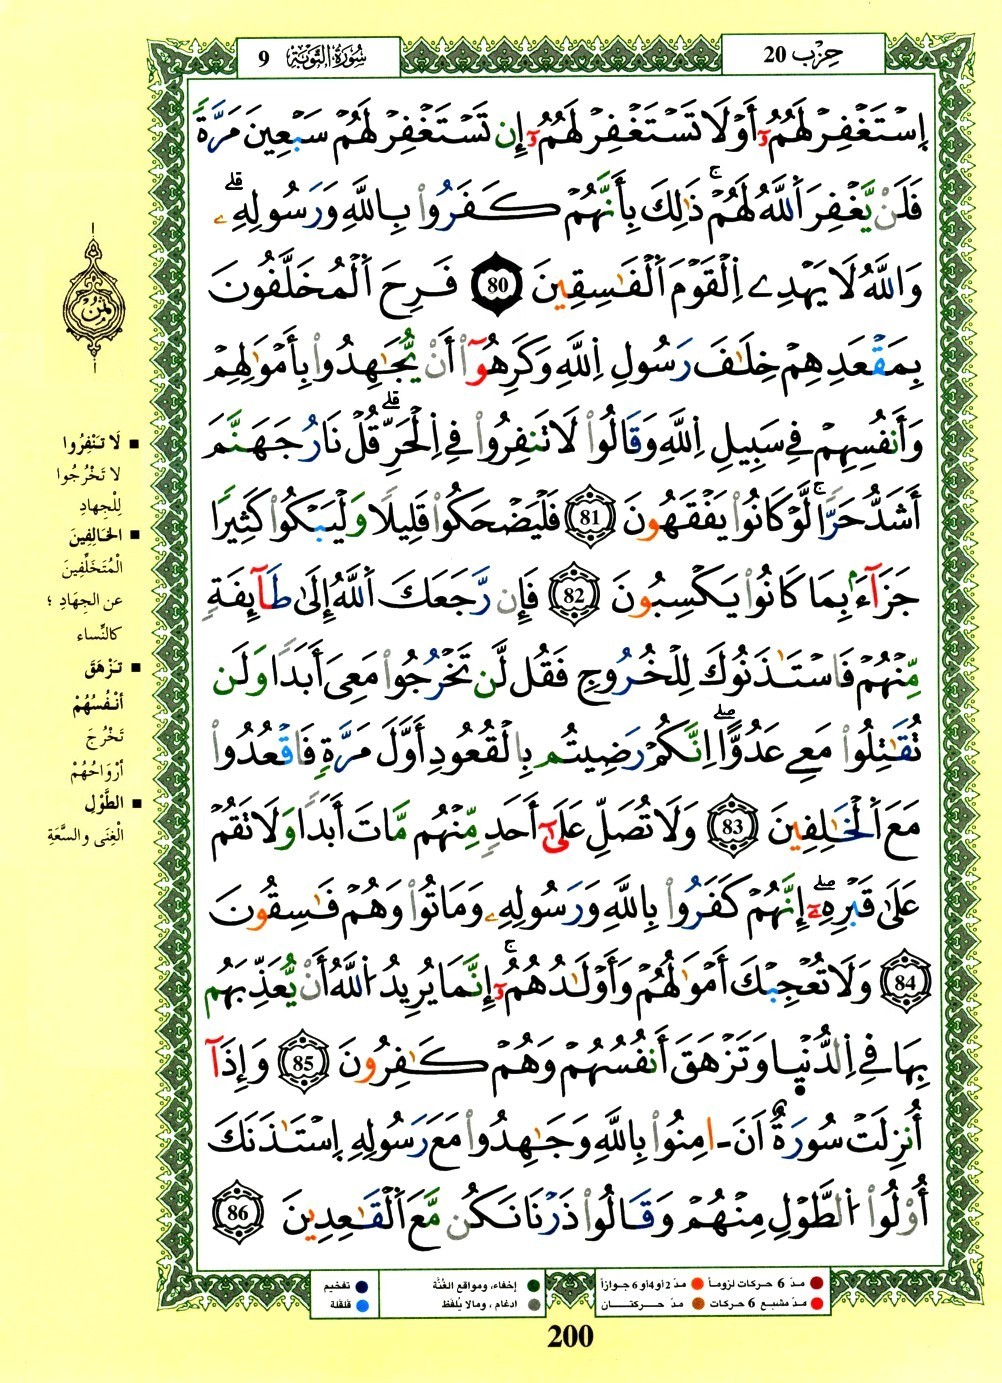 سُورَةُ التَّوْبَة 9
حِزْب 20
إِسْتَغْفِرْ لَهُمُۥٓ أَوْ لَا تَسْتَغْفِرْ لَهُمُۥٓ إِن تَسْتَغْفِرْ لَهُمْ سَبْعِينَ مَرَّةً
فَلَنْ يَّغْفِرَ اَ۬للَّهُ لَهُمْۚ ذَٰلِكَ بِأَنَّهُمْ كَفَرُواْ بِاللَّهِ وَرَسُولِهِۦۗ
وَاللَّهُ لَا يَهْدِے اِ۬لْقَوْمَ اَ۬لْفَٰسِقِينَ 80 فَرِحَ اَ۬لْمُخَلَّفُونَ
بِمَقْعَدِهِمْ خِلَٰفَ رَسُولِ اِ۬للَّهِ وَكَرِهُوٓاْ أَنْ يُّجَٰهِدُواْ بِأَمْوَٰلِهِمْ
وَأَنفُسِهِمْ فِي سَبِيلِ اِ۬للَّهِ وَقَالُواْ لَا تَنفِرُواْ فِي اِ۬لْحَرِّۗ قُلْ نَارُ جَهَنَّمَ
أَشَدُّ حَرًّاۚ لَّوْ كَانُواْ يَفْقَهُونَ 81 فَلْيَضْحَكُواْ قَلِيلًا وَلْيَبْكُواْ كَثِيرًا
جَزَآءَۢ بِمَا كَانُواْ يَكْسِبُونَ 82 فَإِن رَّجَعَكَ اَ۬للَّهُ إِلَىٰ طَآئِفَةٍ
مِّنْهُمْ فَاسْتَـٰٔذَنُوكَ لِلْخُرُوجِ فَقُل لَّن تَخْرُجُواْ مَعِيَ أَبَدًا وَلَن
تُقَٰتِلُواْ مَعِے عَدُوًّاۖ اِنَّكُمْ رَضِيتُم بِالْقُعُودِ أَوَّلَ مَرَّةٍ فَاقْعُدُواْ
مَعَ اَ۬لْخَٰلِفِينَ 83 وَلَا تُصَلِّ عَلَىٰٓ أَحَدٍ مِّنْهُم مَّاتَ أَبَدًا وَلَا تَقُمْ
عَلَىٰ قَبْرِهِۦٓۖ إِنَّهُمْ كَفَرُواْ بِاللَّهِ وَرَسُولِهِۦ وَمَاتُواْ وَهُمْ فَٰسِقُونَ
84 وَلَا تُعْجِبْكَ أَمْوَٰلُهُمْ وَأَوْلَٰدُهُمُۥٓۚ إِنَّمَا يُرِيدُ اُ۬للَّهُ أَنْ يُّعَذِّبَهُم
بِهَا فِي اِ۬لدُّنْي۪ا وَتَزْهَقَ أَنفُسُهُمْ وَهُمْ كَٰفِرُونَ 85 وَإِذَآ
أُنزِلَتْ سُورَةٌ أَنَ ـ اٰمِنُواْ بِاللَّهِ وَجَٰهِدُواْ مَعَ رَسُولِهِ إِسْتَـٰٔذَنَكَ
أُوْلُواْ اُ۬لطَّوْلِ مِنْهُمْ وَقَالُواْ ذَرْنَا نَكُن مَّعَ اَ۬لْقَٰعِدِينَ 86
ثُمُنْ
■ لَا تَنْفِرُوا
لا تَخْرُجُوا
لِلْجِهادِ
■ الخَالِفِينَ
الْمُتَخَلِّفِينَ
عن الجِهَادِ ؛
كالنِّساء
■ تَزْهَقَ
أَنْفُسُهُمْ
تَخْرُجَ
أَرْوَاحُهُمْ
■ الطَّوْلِ
الْغِنَى والسَّعَةِ
مدّ 6 حركات لزوماً
مدّ 2 أو 4 أو 6 جوازاً
إخفاء، ومواقع الغُنَّة
تفخيم
مدّ مشبع 6 حركات
مدّ حركتـــان
ادغام، ومالا يُلفَظ
قلقلة
200